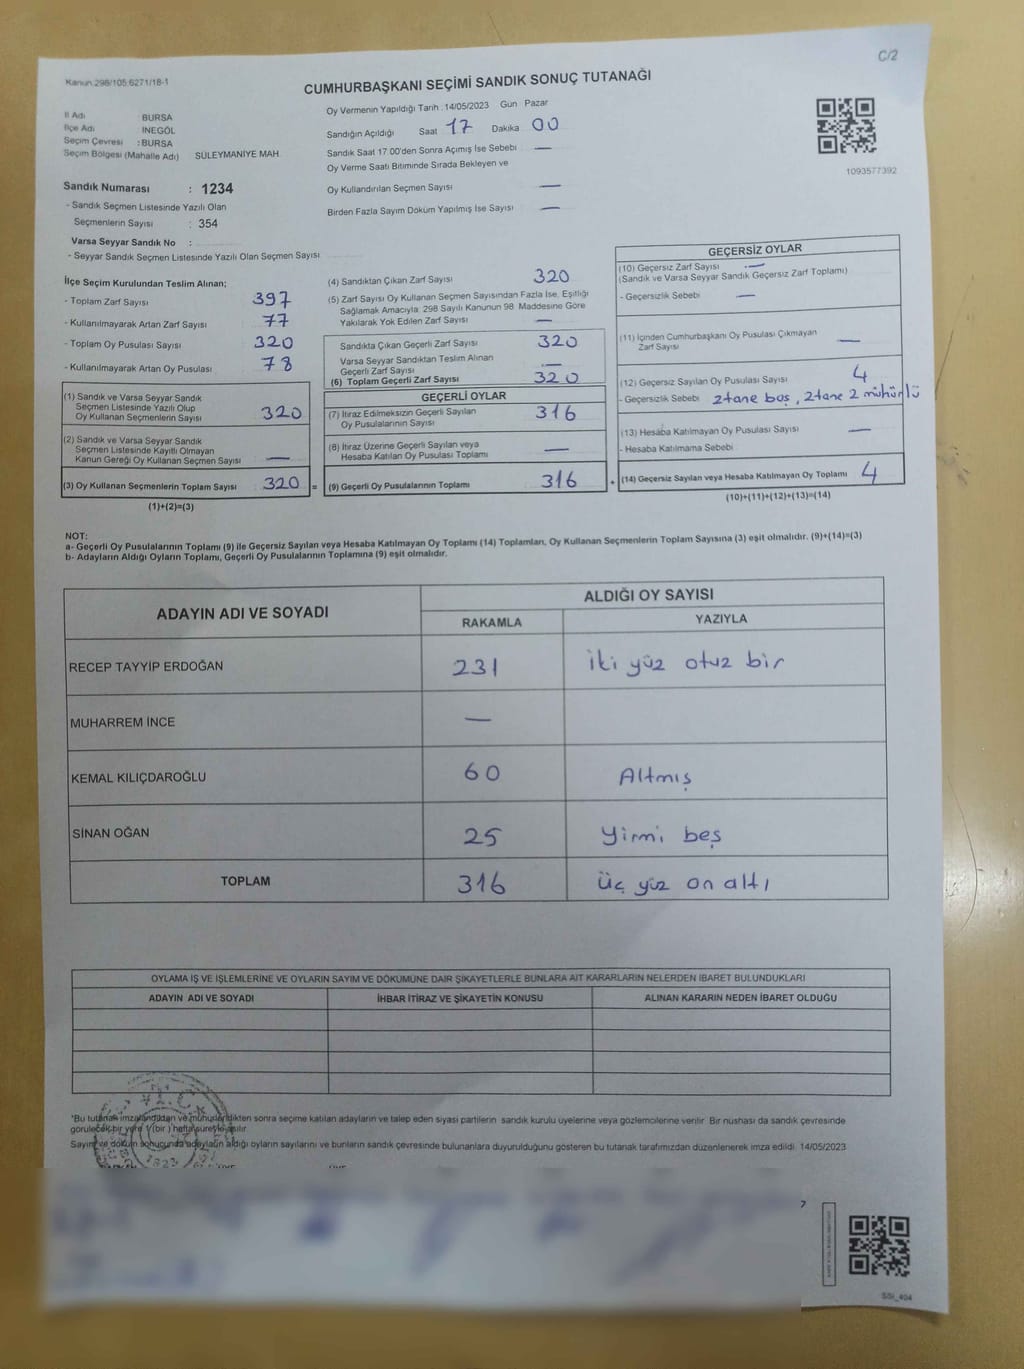 C/2
Kanun 298/105 6271/18-1
CUMHURBAŞKANI SEÇİMİ SANDIK SONUÇ TUTANAĞI
İl Adı BURSA
İlçe Adı İNEGÖL
Seçim Çevresi : BURSA
Seçim Bölgesi (Mahalle Adı) SÜLEYMANİYE MAH.
Oy Vermenin Yapıldığı Tarih : 14/05/2023 Gün Pazar
Sandığın Açıldığı Saat 17 Dakika 00
Sandık Saat 17 00'den Sonra Açılmış İse Sebebi —
Oy Verme Saati Bitiminde Sırada Bekleyen ve
Oy Kullandırılan Seçmen Sayısı —
Birden Fazla Sayım Döküm Yapılmış İse Sayısı —
1093577392
Sandık Numarası : 1234
- Sandık Seçmen Listesinde Yazılı Olan
Seçmenlerin Sayısı : 354
Varsa Seyyar Sandık No :
- Seyyar Sandık Seçmen Listesinde Yazılı Olan Seçmen Sayısı
İlçe Seçim Kurulundan Teslim Alınan;
- Toplam Zarf Sayısı 397
- Kullanılmayarak Artan Zarf Sayısı 77
- Toplam Oy Pusulası Sayısı 320
- Kullanılmayarak Artan Oy Pusulası 78
(1) Sandık ve Varsa Seyyar Sandık
Seçmen Listesinde Yazılı Olup
Oy Kullanan Seçmenlerin Sayısı 320
(2) Sandık ve Varsa Seyyar Sandık
Seçmen Listesinde Kayıtlı Olmayan
Kanun Gereği Oy Kullanan Seçmen Sayısı —
(3) Oy Kullanan Seçmenlerin Toplam Sayısı 320 =
(1)+(2)=(3)
(4) Sandıktan Çıkan Zarf Sayısı 320
(5) Zarf Sayısı Oy Kullanan Seçmen Sayısından Fazla İse, Eşitliği
Sağlamak Amacıyla; 298 Sayılı Kanunun 98. Maddesine Göre
Yakılarak Yok Edilen Zarf Sayısı —
Sandıkta Çıkan Geçerli Zarf Sayısı 320
Varsa Seyyar Sandıktan Teslim Alınan
Geçerli Zarf Sayısı —
(6) Toplam Geçerli Zarf Sayısı 320
GEÇERLİ OYLAR
(7) İtiraz Edilmeksizin Geçerli Sayılan
Oy Pusulalarının Sayısı 316
(8) İtiraz Üzerine Geçerli Sayılan veya
Hesaba Katılan Oy Pusulası Toplamı —
(9) Geçerli Oy Pusulalarının Toplamı 316 +
GEÇERSİZ OYLAR
(10) Geçersiz Zarf Sayısı —
(Sandık ve Varsa Seyyar Sandık Geçersiz Zarf Toplamı)
- Geçersizlik Sebebi —
(11) İçinden Cumhurbaşkanı Oy Pusulası Çıkmayan
Zarf Sayısı —
(12) Geçersiz Sayılan Oy Pusulası Sayısı 4
- Geçersizlik Sebebi 2tane boş, 2tane 2 mühürlü
(13) Hesaba Katılmayan Oy Pusulası Sayısı —
- Hesaba Katılmama Sebebi
(14) Geçersiz Sayılan veya Hesaba Katılmayan Oy Toplamı 4
(10)+(11)+(12)+(13)=(14)
NOT:
a- Geçerli Oy Pusulalarının Toplamı (9) ile Geçersiz Sayılan veya Hesaba Katılmayan Oy Toplamı (14) Toplamları, Oy Kullanan Seçmenlerin Toplam Sayısına (3) eşit olmalıdır. (9)+(14)=(3)
b- Adayların Aldığı Oyların Toplamı, Geçerli Oy Pusulalarının Toplamına (9) eşit olmalıdır.
ADAYIN ADI VE SOYADI ALDIĞI OY SAYISI
RAKAMLA YAZIYLA
RECEP TAYYİP ERDOĞAN 231 iki yüz otuz bir
MUHARREM İNCE —
KEMAL KILIÇDAROĞLU 60 Altmış
SİNAN OĞAN 25 Yirmi beş
TOPLAM 316 üç yüz on altı
OYLAMA İŞ VE İŞLEMLERİNE VE OYLARIN SAYIM VE DÖKÜMÜNE DAİR ŞİKAYETLERLE BUNLARA AİT KARARLARIN NELERDEN İBARET BULUNDUKLARI
ADAYIN ADI VE SOYADI İHBAR İTİRAZ VE ŞİKAYETİN KONUSU ALINAN KARARIN NEDEN İBARET OLDUĞU
*Bu tutanak imzalandıktan ve mühürlendikten sonra seçime katılan adayların ve talep eden siyasi partilerin sandık kurulu üyelerine veya gözlemcilerine verilir. Bir nüshası da sandık çevresinde
görülecek bir yere 1 (bir) hafta süreyle asılır.
Sayım ve döküm sonucunda adayların aldığı oyların sayılarını ve bunların sandık çevresinde bulunanlara duyurulduğunu gösteren bu tutanak tarafımızdan düzenlenerek imza edildi. 14/05/2023
T.C.